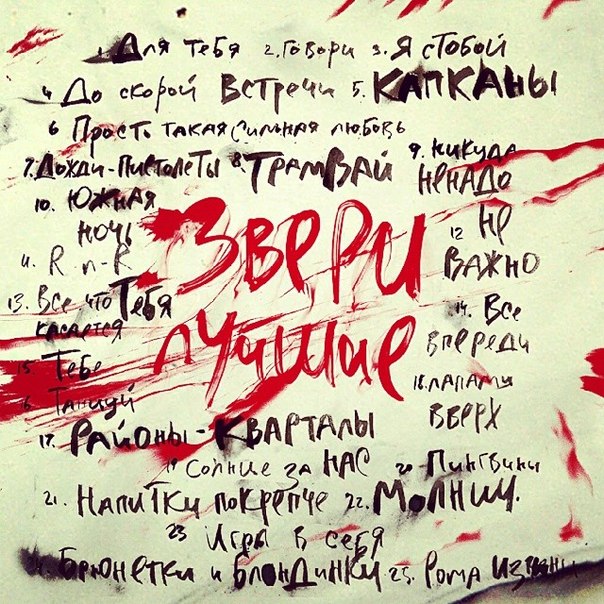 1. Для тебя 2. Говори 3. Я с тобой
4 До скорой встречи 5. КАПКАНЫ
6 Просто такая сильная любовь
7. Дожди-пистолеты 8. ТРАМВАЙ 9. никуда
не надо
10. Южная
ночь
ЗВЕРИ
12 Не
важно
11. R n-R
13. Все что тебя
касается
14. Все
впереди
лучшие
15 Тебе
18. лапами
вверх
6 Танцуй
17. РАЙОНЫ-КВАРТАЛЫ
19 Солнце за нас 20-Пингвины
21. Напитки покрепче 22. Молнии.
23 Игры в себя
Брюнетки и блондинки 25. Рома извини